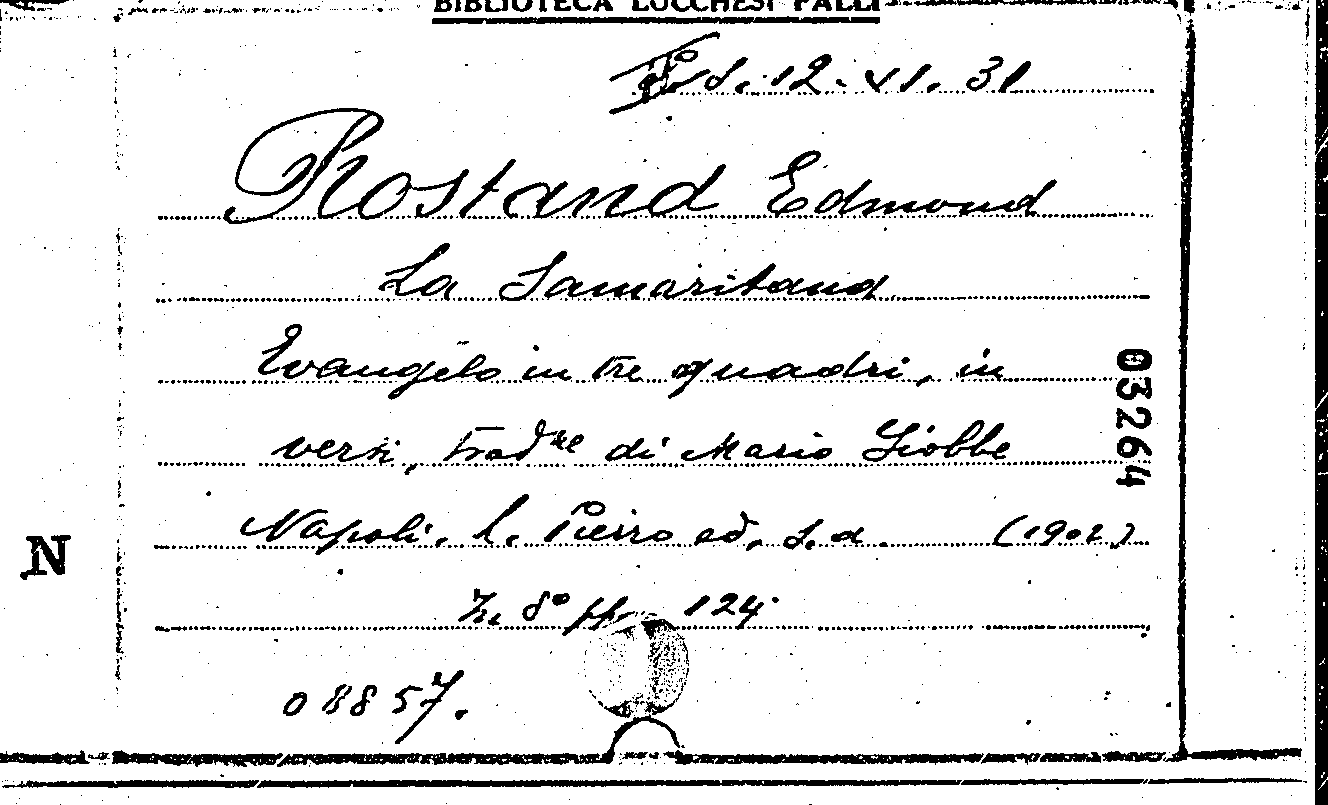 BIBLIOTECA LUCCHESI PALLI
S. 12. VI. 31
Rostand Edmond
La Samaritana
Evangelo in tre quadri, in
versi, trad.ne di Mario Giobbe
Napoli. L. Pierro ed. s. d. (1902)
In 8° pp. 124
08857.
03264
N